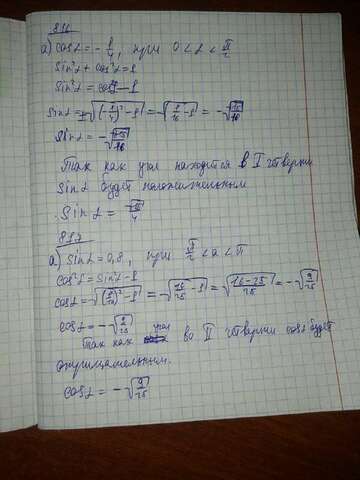 816
а) cosα = - 1/4, при 0 < α < π/2
sin²α + cos²α = 1
sin²α = cos²α - 1
sinα = ±√((-1/4)² - 1) = -√(1/16 - 1) = -√(15/16)
sinα = -√(15/16)
Так как угол находится в I четверти
sinα будет положительным
sinα = √15/4
817
а) sinα = 0,8, при π/2 < α < π
cos²α = sin²α - 1
cosα = -√((8/10)² - 1) = -√(16/25 - 1) = √((16-25)/25) = -√(9/25)
cosα = -√(9/25)
Так как угол во II четверти cosα будет
отрицательным.
cosα = -√(9/25)